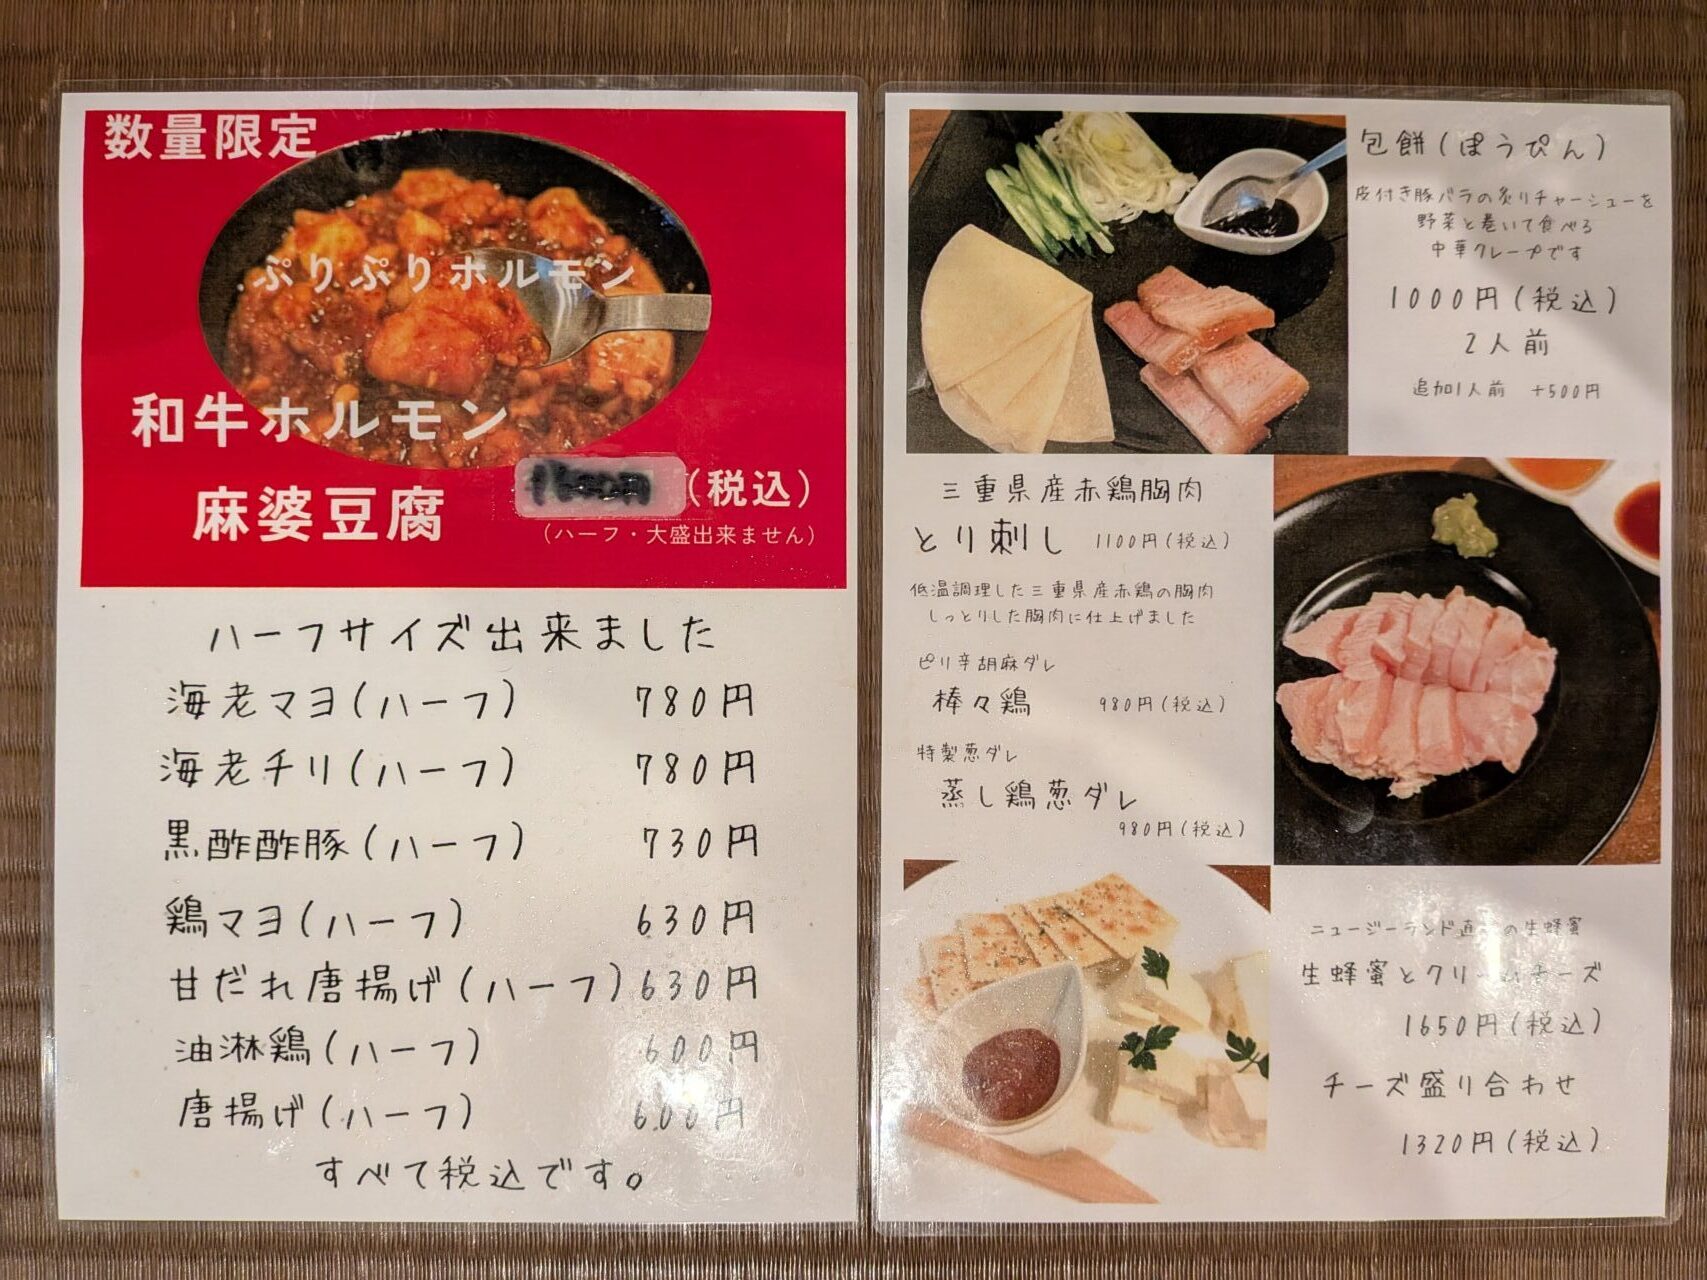 数量限定
ぷりぷりホルモン
和牛ホルモン
麻婆豆腐
(税込)
(ハーフ・大盛出来ません)
ハーフサイズ出来ました
海老マヨ(ハーフ) 780円
海老チリ(ハーフ) 780円
黒酢酢豚(ハーフ) 730円
鶏マヨ(ハーフ) 630円
甘だれ唐揚げ(ハーフ) 630円
油淋鶏(ハーフ) 600円
唐揚げ(ハーフ) 600円
すべて税込です。
包餅(ぽうぴん)
皮付き豚バラの炙りチャーシューを
野菜と巻いて食べる
中華クレープです
1000円(税込)
2人前
追加1人前 +500円
三重県産赤鶏胸肉
とり刺し 1100円(税込)
低温調理した三重県産赤鶏の胸肉
しっとりした胸肉に仕上げました
ピリ辛胡麻ダレ
棒々鶏 980円(税込)
特製葱ダレ
蒸し鶏葱ダレ
980円(税込)
ニュージーランド直 の生蜂蜜
生蜂蜜とクリームチーズ
1650円(税込)
チーズ盛り合わせ
1320円(税込)